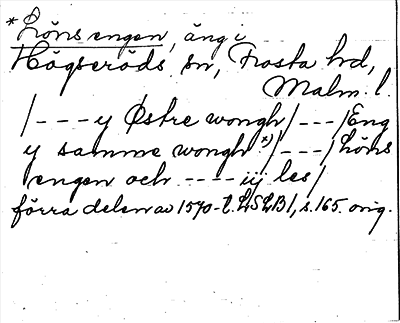 *Löns engen, äng i
Högseröds sn, Frosta hd,
Malm. l.
/---y Østre wongh/---/Eng
y samme wongh *)/---/Löns
engen och ---- iij les/
förra delen av 1570-t. LSLB1, s. 165. orig.